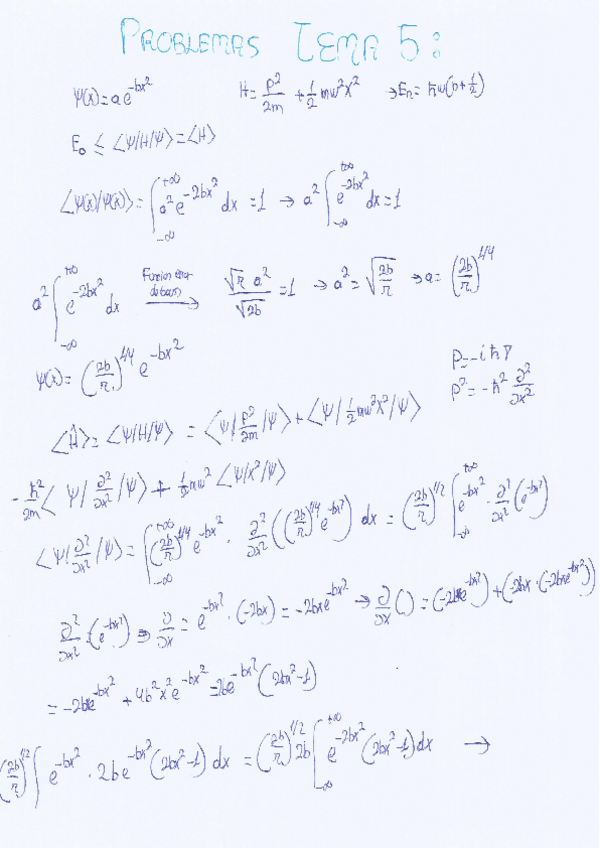 PROBLEMAS TEMA 5:
Ψ(x)=ae^{-bx²}   H= p²/2m + 1/2 mω²x²   → Eₙ= ħω(n+1/2)
E₀ ≤ ⟨Ψ/H/Ψ⟩=⟨H⟩
⟨Ψ(x)/Ψ(x)⟩= ∫_{-∞}^{+∞} a²e^{-2bx²} dx = 1 → a² ∫_{-∞}^{+∞} e^{-2bx²} dx=1
a² ∫_{-∞}^{+∞} e^{-2bx²} dx → √π a²/√2b = 1 → a² = √(2b/π) → a= (2b/π)^{1/4}
Ψ(x)= (2b/π)^{1/4} e^{-bx²}   P=-iħ∇
P²= -ħ² ∂²/∂x²
⟨Ĥ⟩= ⟨Ψ/H/Ψ⟩ = ⟨Ψ/ p²/2m /Ψ⟩+⟨Ψ/ 1/2 mω²x²/Ψ⟩
-ħ²/2m ⟨Ψ/ ∂²/∂x² /Ψ⟩ + 1/2 mω² ⟨Ψ/x²/Ψ⟩
⟨Ψ/ ∂²/∂x² /Ψ⟩= ∫_{-∞}^{+∞} (2b/π)^{1/4} e^{-bx²} · ∂²/∂x² ((2b/π)^{1/4} e^{-bx²}) dx = (2b/π)^{1/2} ∫_{-∞}^{+∞} e^{-bx²} · ∂²/∂x² (e^{-bx²})
∂²/∂x² (e^{-bx²}) ⇒ ∂/∂x = e^{-bx²} · (-2bx) = -2bxe^{-bx²} → ∂/∂x ( ) = (-2be^{-bx²})+(-2bx·(-2bxe^{-bx²}))
= -2be^{-bx²} + 4b²x²e^{-bx²} =2be^{-bx²} (2bx²-1)
(2b/π)^{1/2} ∫ e^{-bx²} · 2be^{-bx²} (2bx²-1) dx = (2b/π)^{1/2} 2b ∫_{-∞}^{+∞} e^{-2bx²} (2bx²-1) dx →